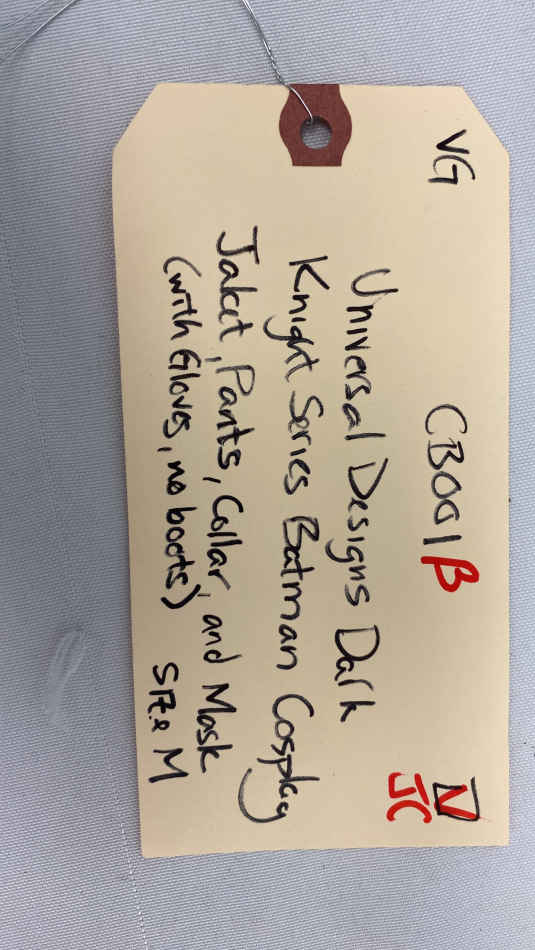 VG CB001β
JC
Universal Designs Dark
Knight Series Batman Cosplay
Jaket, Pants, Collar, and Mask
(with Gloves, no boots) Size M